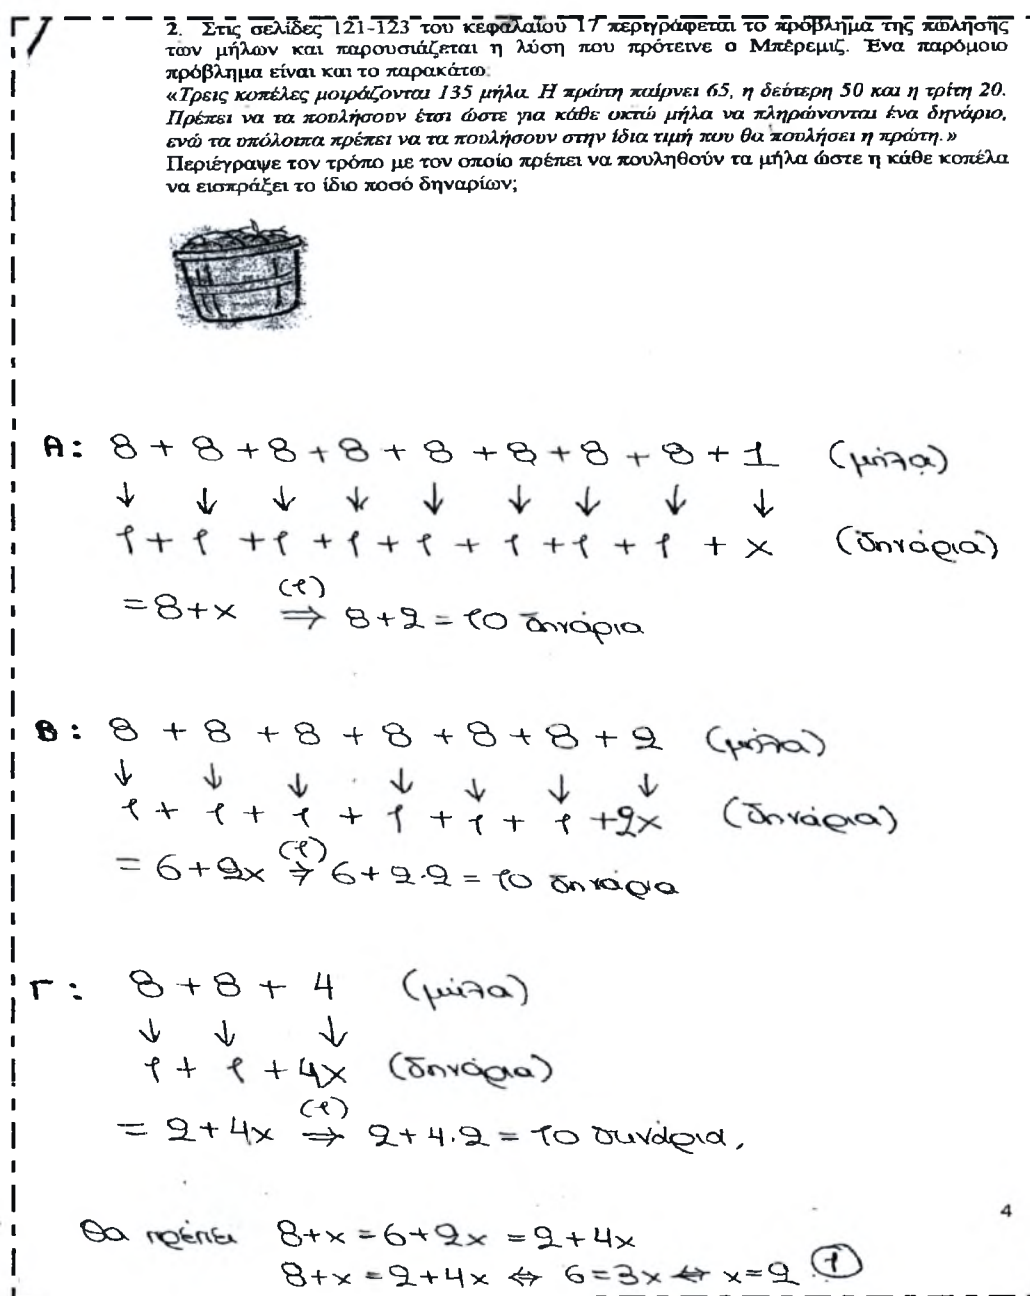 2. Στις σελίδες 121-123 του κεφαλαίου 17 περιγράφεται το πρόβλημα της πώλησης
των μήλων και παρουσιάζεται η λύση που πρότεινε ο Μπέρεμιζ. Ένα παρόμοιο
πρόβλημα είναι και το παρακάτω:
«Τρεις κοπέλες μοιράζονται 135 μήλα. Η πρώτη παίρνει 65, η δεύτερη 50 και η τρίτη 20.
Πρέπει να τα πουλήσουν έτσι ώστε για κάθε οκτώ μήλα να πληρώνονται ένα δηνάριο,
ενώ τα υπόλοιπα πρέπει να τα πουλήσουν στην ίδια τιμή που θα πουλήσει η πρώτη.»
Περιέγραψε τον τρόπο με τον οποίο πρέπει να πουληθούν τα μήλα ώστε η κάθε κοπέλα
να εισπράξει το ίδιο ποσό δηναρίων;
Α: 8 + 8 + 8 + 8 + 8 + 8 + 8 + 8 + 1 (μήλα)
↓ ↓ ↓ ↓ ↓ ↓ ↓ ↓ ↓
1 + 1 + 1 + 1 + 1 + 1 + 1 + 1 + x (δηνάρια)
= 8 + x (1) ⇒ 8 + 2 = 10 δηνάρια
Β: 8 + 8 + 8 + 8 + 8 + 8 + 2 (μήλα)
↓ ↓ ↓ ↓ ↓ ↓ ↓
1 + 1 + 1 + 1 + 1 + 1 + 2x (δηνάρια)
= 6 + 2x (1) ⇒ 6 + 2·2 = 10 δηνάρια
Γ: 8 + 8 + 4 (μήλα)
↓ ↓ ↓
1 + 1 + 4x (δηνάρια)
= 2 + 4x (1) ⇒ 2 + 4·2 = 10 δυνάρια,
4
Θα πρέπει 8 + x = 6 + 2x = 2 + 4x
8 + x = 2 + 4x ⇔ 6 = 3x ⇔ x = 2 (1)